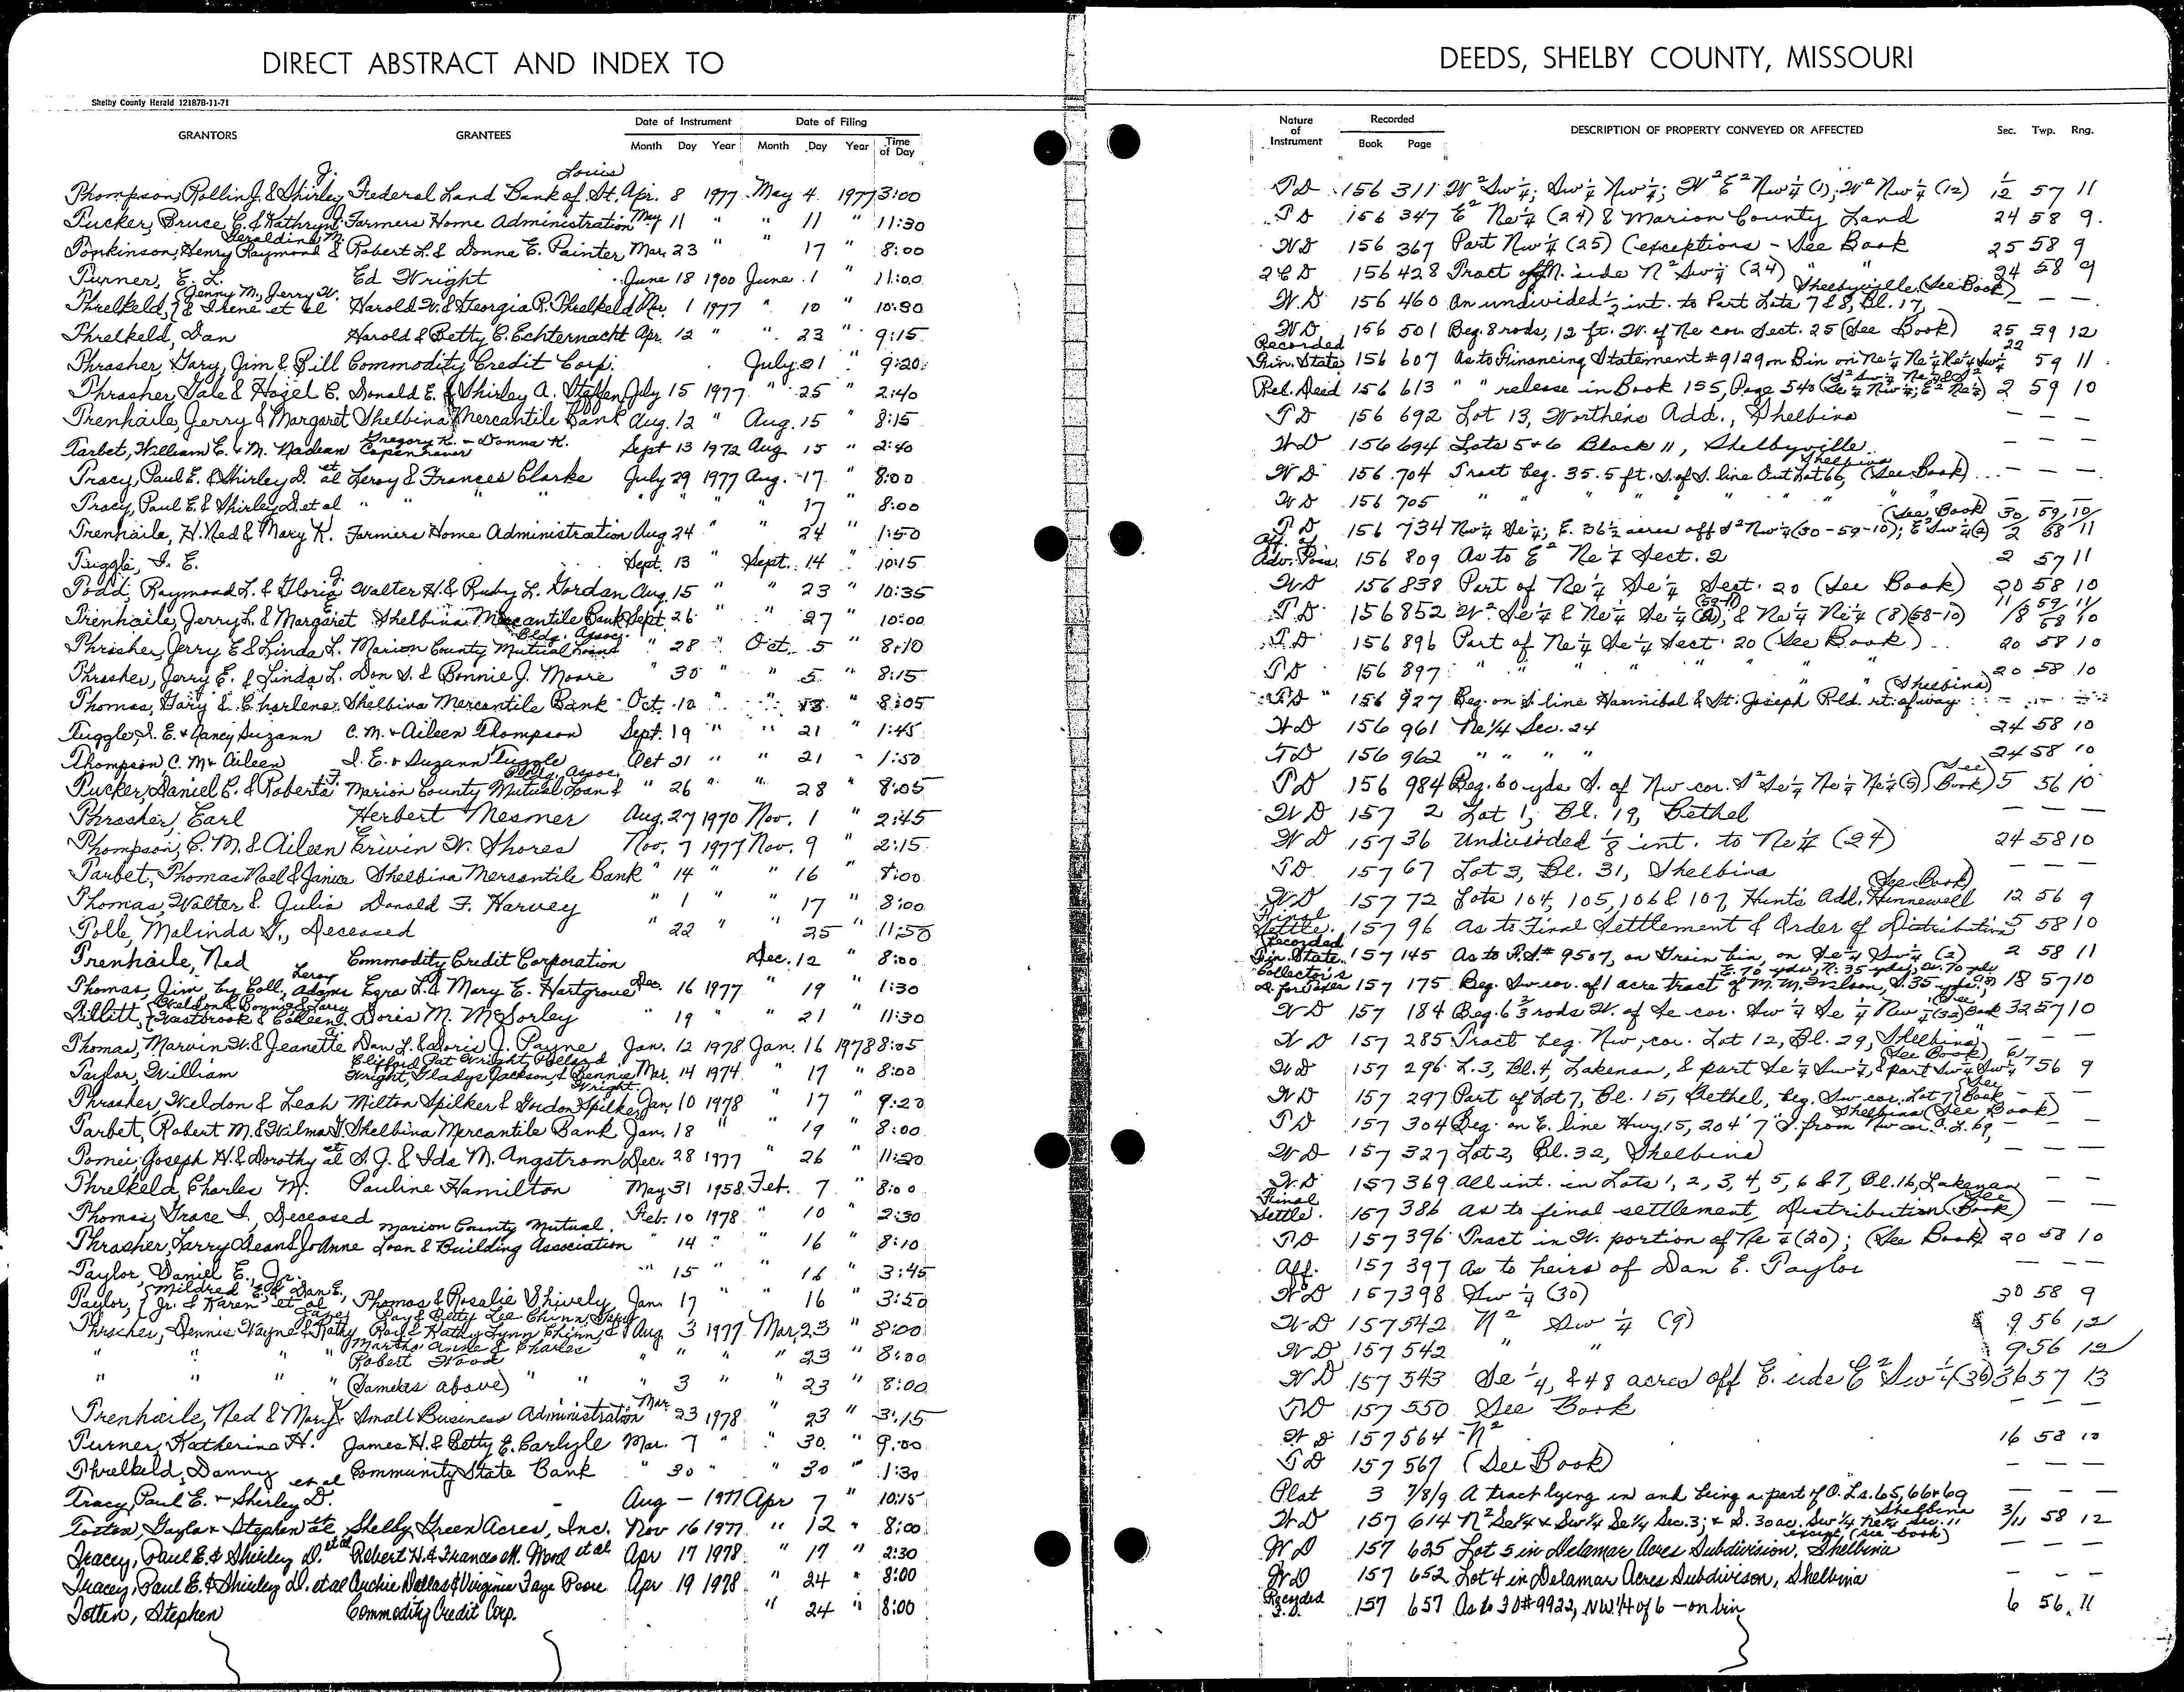 DIRECT ABSTRACT AND INDEX TO
DEEDS, SHELBY COUNTY, MISSOURI
Shelby County Herald 12187B-11-71
GRANTORS GRANTEES Date of Instrument Month Day Year Date of Filing Month Day Year Time of Day
Nature of Instrument Recorded Book Page DESCRIPTION OF PROPERTY CONVEYED OR AFFECTED Sec. Twp. Rng.
Thompson, Rollin J. & Shirley J. Federal Land Bank of St. Louis Apr. 8 1977 May 4 1977 3:00 TD 156 311 W² Sw¼; Sw¼ Nw¼; W² E² Nw¼ (1); W² Nw¼ (12) 1/12 57 11
Tucker, Bruce C. & Kathryn J. Farmers Home Administration May 11 " " 11 " 11:30 TD 156 347 E² Ne¼ (24) & Marion County Land 24 58 9
Tonkinson, Henry Raymond & Geraldine M. Robert L. & Donna E. Painter Mar. 23 " " 17 " 8:00 WD 156 367 Part Nw¼ (25) (exceptions - See Book 25 58 9
Turner, E. L. Ed Wright June 18 1900 June 1 " 11:00 QCD 156 428 Tract off N. side N² Sw¼ (24) " " 24 58 9
Threlkeld, {Jenny M., Jerry W. & Irene et al Harold W. & Georgia R. Threlkeld 1 1977 " 10 " 10:30 W.D 156 460 An undivided ½ int. to Part Lots 7 & 8, Bl. 17, Shelbyville (See Book) — — —
Threlkeld, Dan Harold & Betty C. Echternacht Apr. 12 " " 23 " 9:15 WD 156 501 Beg. 8 rods, 12 ft. W. of Ne cor. Sect. 25 (See Book) 25 59 12
Thrasher, Gary, Jim & Bill Commodity Credit Corp. July 21 " 9:20 Recorded Fin. State 156 607 As to Financing Statement #9129 on Bin on Ne¼ Ne¼ Ne¼ Sw¼ 22 59 11
Thrasher, Gale & Hazel C. Donald E. & Shirley A. Steffen July 15 1977 " 25 " 2:40 Rel. Deed 156 613 " " release in Book 155, Page 540 2 59 10
Trenhaile, Jerry & Margaret Shelbina Mercantile Bank Aug. 12 " Aug. 15 " 8:15 TD 156 692 Lot 13, Worthens Add., Shelbina — — —
Tarbet, William E. & M. Nadean Gregory K. & Donna K. Copenhaver Sept 13 1972 Aug 15 " 2:40 WD 156 694 Lots 5 & 6 Block 11, Shelbyville — — —
Tracy, Paul E. & Shirley D. et al Leroy & Frances Clarke July 29 1977 Aug. 17 " 8:00 WD 156 704 Tract beg. 35.5 ft. S. of S. line Out Lot 66, Shelbina (See Book) — — —
Tracy, Paul E. & Shirley D. et al " " " " " 17 8:00 WD 156 705 " " " " " "
Trenhaile, H. Ned & Mary K. Farmers Home Administration Aug 24 " 24 " 1:50 TD 156 734 Nw¼ Se¼; E. 36½ acres off S² Nw¼ (30-59-10); E² Sw¼ (2) (See Book) 30 59 10/ 2 58 11
Tuggle, I. E. Sept. 13 " Sept. 14 " 10:15 Aff. of Adv. Poss. 156 809 As to E² Ne¼ Sect. 2 2 57 11
Todd, Raymond L. & Gloria J. Walter H. & Ruby L. Gordan Aug. 15 " " 23 " 10:35 WD 156 838 Part of Ne¼ Se¼ Sect. 20 (See Book) 20 58 10
Trenhaile, Jerry L. & Margaret E. Shelbina Mercantile Bank Sept. 26 " " 27 " 10:00 TD 156 852 W² Se¼ & Ne¼ Se¼ (59-11), & Ne¼ Ne¼ (8)(58-10) 11/8 59/58 11/10
Thrasher, Jerry E. & Linda L. Marion County Mutual Loan Bldg. Assoc. " 28 " Oct. 5 " 8:10 TD 156 896 Part of Ne¼ Se¼ Sect. 20 (See Book) 20 58 10
Thrasher, Jerry E. & Linda L. Don S. & Bonnie J. Moore " 30 " " 5 " 8:15 TD 156 897 " " " " " " 20 58 10
Thomas, Gary E. Charlene Shelbina Mercantile Bank Oct. 12 " " 13 " 8:05 TD 156 927 Beg. on S line Hannibal & St. Joseph Rld. rt. of way (Shelbina) — — —
Tuggle, I. E. & Nancy Suzann C. M. & Aileen Thompson Sept. 19 " " 21 " 1:45 WD 156 961 Ne1/4 Sec. 24 24 58 10
Thompson, C. M & Aileen I. E. & Suzann Tuggle Oct 21 " " 21 " 1:50 TD 156 962 " " " " 24 58 10
Tucker, Daniel C. & Roberta J. Marion County Mutual Loan & Bldg. Assoc. " 26 " " 28 " 8:05 TD 156 984 Beg. 60 yds S. of Nw cor. S² Se¼ Ne¼ Ne¼ (5) (See Book) 5 56 10
Thrasher, Earl Herbert Mesmer Aug. 27 1970 Nov. 1 " 2:45 WD 157 2 Lot 1, Bl. 19, Bethel — — —
Thompson, C. M. & Aileen Erwin W. Shores Nov. 7 1977 Nov. 9 " 2:15 WD 157 36 Undivided ⅛ int. to Ne¼ (24) 24 58 10
Tarbet, Thomas Noel & Janice Shelbina Mercantile Bank " 14 " " 16 " 8:00 TD 157 67 Lot 3, Bl. 31, Shelbina — — —
Thomas, Walter & Julia Donald F. Harvey " 1 " " 17 " 8:00 WD 157 72 Lots 104, 105, 106 & 107, Hunts Add. Hunnewell (See Book) 12 56 9
Tolle, Malinda S., Deceased " 22 " " 25 " 11:50 Final Settle. 157 96 As to Final Settlement & Order of Distribution 5 58 10
Trenhaile, Ned Commodity Credit Corporation Dec. 12 " 8:00 Recorded Fin. State. 157 145 As to F.S.# 9507, on Grain bin, on Se¼ Sw¼ (2) 2 58 11
Thomas, Jim, by Coll. Leroy Adams Ezra L. & Mary E. Hartgrove Dec. 16 1977 " 19 " 1:30 Collector's D. for Taxes 157 175 Beg. Sw cor. of 1 acre tract of M. M. Wilson, S. 35 yds, E. 70 yds, N. 35 yds, W. 70 yds 18 57 10
Tillett, Doris M. McSorley " 19 " " 21 " 11:30 WD 157 184 Beg. 6⅔ rods W. of Se cor. Sw¼ Se¼ Nw¼ (32) (See Book 32 57 10
Thomas, Marvin W. & Jeanette Dan L. & Doris J. Payne Jan. 12 1978 Jan. 16 1978 8:05 WD 157 285 Tract beg. Nw. cor. Lot 12, Bl. 29, Shelbina (See Book) — — —
Taylor, William Clifford Pat Wright, Pollard Wright, Gladys Jackson, & Bennie Wright Mar. 14 1974 " 17 " 8:00 WD 157 296 L. 3, Bl. 4, Lakenan, & part Se¼ Sw¼, & part Sw¼ Sw¼ 6/7 56 9
Thrasher, Weldon & Leah Milton Spilker & Gordon Spilker Jan. 10 1978 " 17 " 9:20 WD 157 297 Part of Lot 7, Bl. 15, Bethel, beg. Sw cor. Lot 7 (See Book — — —
Tarbet, Robert M. & Wilma J. Shelbina Mercantile Bank Jan. 18 " " 19 " 8:00 TD 157 304 Beg. on E. line Hwy. 15, 204' 7" S. from Nw cor. O.L. 69, Shelbina (See Book) — — —
Tomei, Joseph H. & Dorothy et al S. J. & Ida M. Angstrom Dec. 28 1977 " 26 " 11:20 WD 157 327 Lot 2, Bl. 32, Shelbina — — —
Threlkeld, Charles M. Pauline Hamilton May 31 1958 Feb. 7 " 8:00 WD 157 369 All int. in Lots 1, 2, 3, 4, 5, 6 & 7, Bl. 16, Lakenan — —
Thomas, Grace I., Deceased Feb. 10 1978 " 10 " 2:30 Final Settle. 157 386 As to final settlement, Distribution (See Book) — — —
Thrasher, Larry Dean & JoAnne Marion County Mutual Loan & Building Association " 14 " " 16 " 8:10 TD 157 396 Tract in W. portion of Ne¼ (20); (See Book) 20 58 10
Taylor, Daniel E., Jr. " 15 " " 16 " 3:45 Aff. 157 397 As to heirs of Dan E. Taylor — — —
Taylor, {Mildred E. & Dan E., Jr. & Karen et al Thomas & Rosalie Shively Jan. 17 " " 16 " 3:50 WD 157 398 Sw¼ (30) 30 58 9
Thrasher, Dennis Wayne & Kathy Faye Ray & Betty Lee Chinn, Gary Roy & Kathy Lynn Chinn, & Aug. 3 1977 Mar. 23 " 8:00 WD 157 542 N² Sw¼ (9) 9 56 12
" " " " Martha Anne & Charles Robert Wood " " " " 23 " 8:00 WD 157 542 " " 9 56 12
" " " " (Same as above) " " " 3 " " 23 " 8:00 WD 157 543 Se¼, & 48 acres off E. side E² Sw¼ (36) 36 57 13
Trenhaile, Ned & Mary K. Small Business Administration Mar. 23 1978 " 23 " 3:15 TD 157 550 See Book — — —
Turner, Katherine H. James H. & Betty E. Carlyle Mar. 7 " " 30 " 9:00 WD 157 564 N² 16 58 10
Threlkeld, Danny Community State Bank " 30 " " 30 " 1:30 TD 157 567 (See Book) — — —
Tracy, Paul E. & Shirley D. et al Aug — 1977 Apr 7 " 10:15 Plat 3 7/8/9 A tract lying in and being a part of O. Ls. 65, 66 & 69 Shelbina — — —
Totten, Gayla & Stephen et al Shelby Green Acres, Inc. Nov 16 1977 " 12 " 8:00 WD 157 614 N² Se1/4 & Sw1/4 Se1/4 Sec. 3; & S. 30 ac. Sw 1/4 Ne1/4 Sec. 11 except (see book) 3/11 58 12
Tracey, Paul E. & Shirley D. et al Robert H. & Frances M. Wood et al Apr 17 1978 " 17 " 2:30 WD 157 625 Lot 5 in Delamar Acres Subdivision, Shelbina — — —
Tracey, Paul E. & Shirley D. et al Archie Dallas & Virginia Faye Poore Apr 19 1978 " 24 " 8:00 WD 157 652 Lot 4 in Delamar Acres Subdivison, Shelbina — — —
Totten, Stephen Commodity Credit Corp. " 24 " 8:00 Recorded F.S. 157 657 As to F.S #9922, NW 1/4 of 6 — on bin 6 56 11